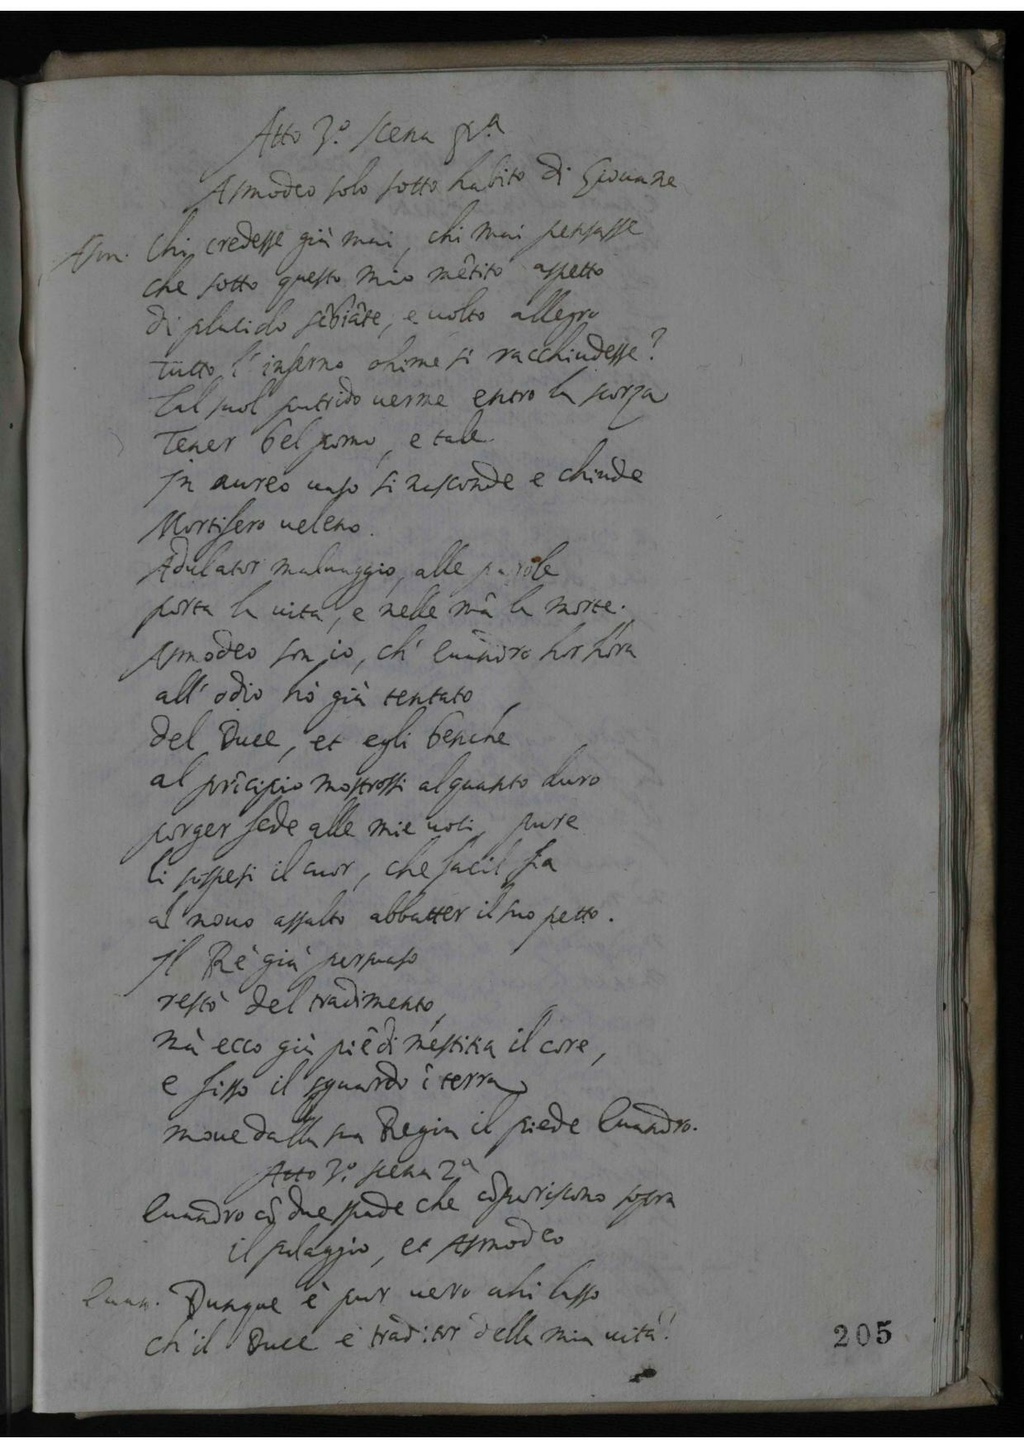 Atto 3.º scena pr.ª
Asmodeo solo sotto habito di Giouane
Asm. Chi credesse già mai, chi mai pensasse
che sotto questo mio mẽtito aspetto
di placido sẽbiãte, e uolto allegro
tutto l'inferno ohime si racchiudesse?
Tal suol putrido uerme entro la scorza
Tener bel pomo, e tale
In aureo uaso si nasconde e chiude
Mortifero ueleno.
Adulator maluaggio, alle parole
porta la uita, e nelle mã la morte.
Asmodeo son io, ch' Euandro hor hora
all' odio hò già tentato
del Duce, et egli benche
al prĩcipio mostrossi alquanto duro
porger fede alle mie uoci, pure
li sospesi il cuor, che facil fia
al nouo assalto abbatter il suo petto.
Il Rè già persuaso
restò del tradimento,
mà ecco già piẽ di mestitia il core,
e fisso il sguardo ĩ terra
moue dalla sua Regia il piede Euandro.
Atto 3.º scena 2ª
Euandro cõ due spade che cõpariscono sopra
il palaggio, et Asmodeo
Euan. Dunque è pur uero ahi lasso
ch'il Duce è traditor della mia uita!
205